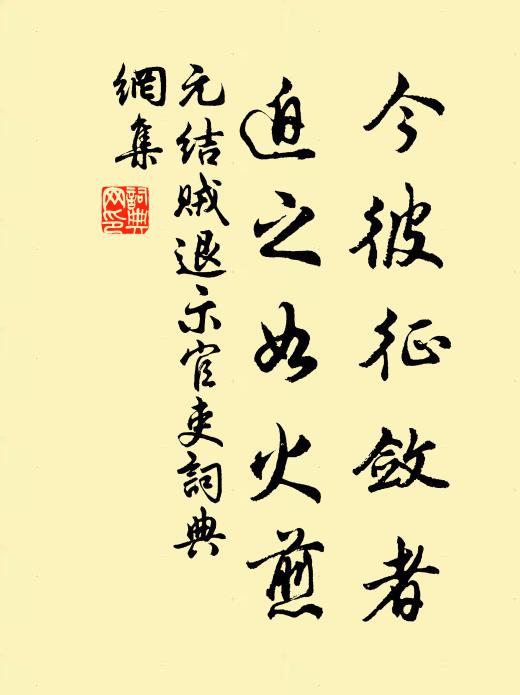 今彼征敛者
迫之如火煎
元结贼退示官吏词典
網集
詞典
网印